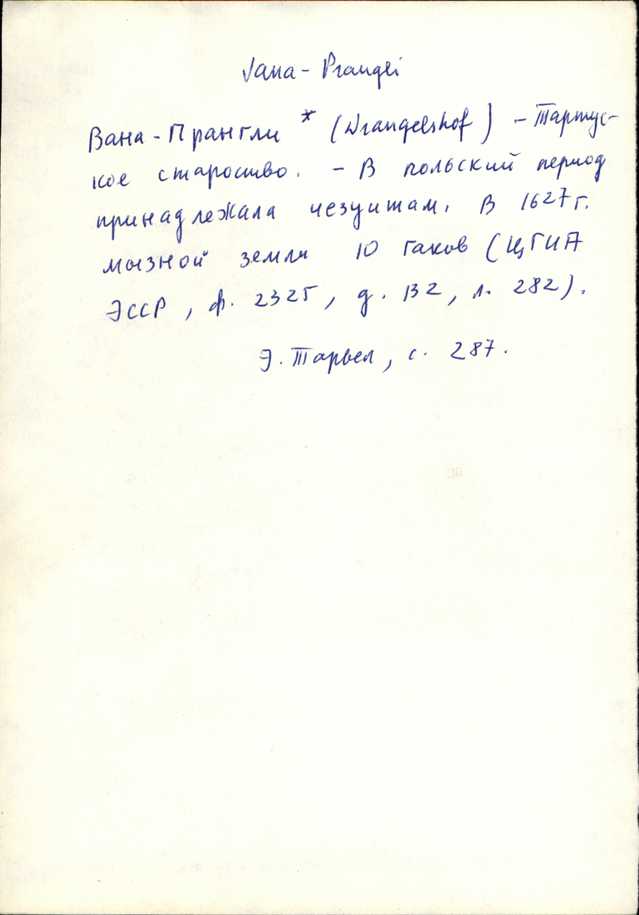 Vana-Prangli
Вана-Прангли * (Wrangelshof) - Тартус-
кое староство. - В польский период
принадлежала иезуитам. В 1627 г.
мызной земли 10 гаков (ЦГИА
ЭССР, ф. 2325, д. 132, л. 282).
Э. Тарвел, с. 287.